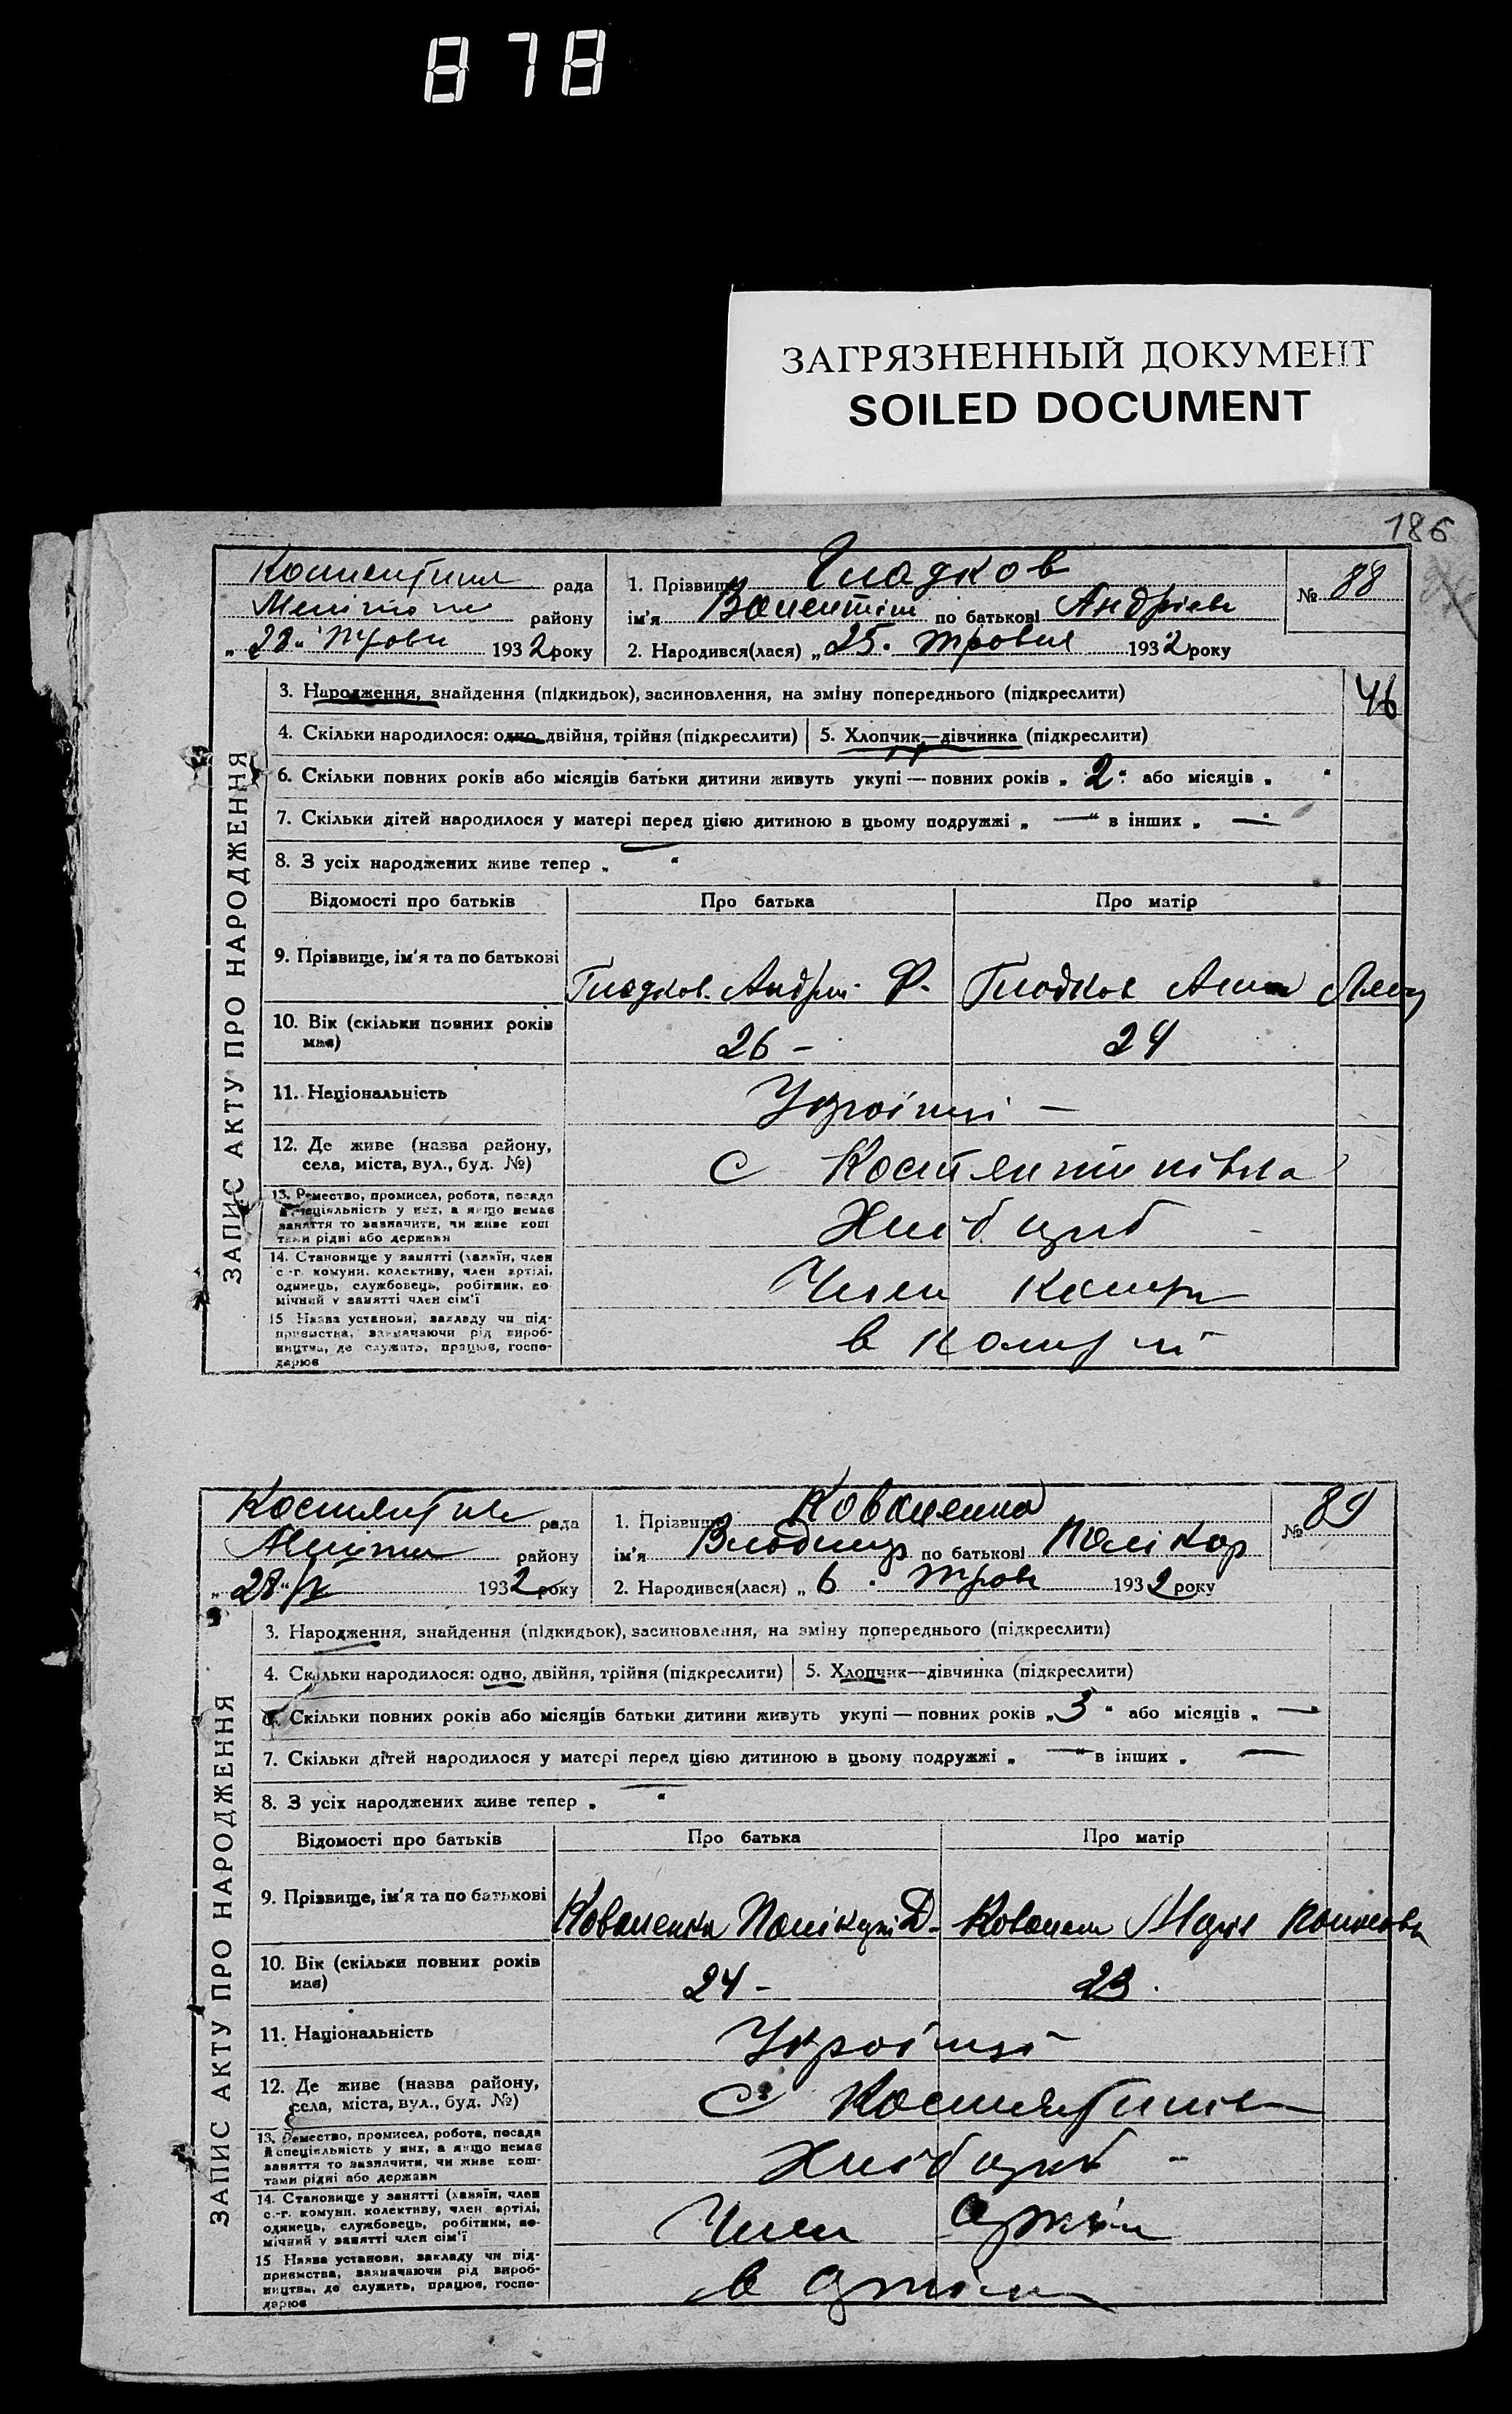 878
ЗАГРЯЗНЕННЫЙ ДОКУМЕНТ
SOILED DOCUMENT
186
ЗАПИС АКТУ ПРО НАРОДЖЕННЯ
рада
району
„ 28 “ 1932 року
1. Прізвище Гладков
ім'я Валентін по батькові Андрієв
2. Народився(лася) „ 25 . травня 1932 року
№ 88
3. Народження, знайдення (підкидьок), засиновлення, на зміну попереднього (підкреслити)
46
4. Скільки народилося: одно, двійня, трійня (підкреслити) 5. Хлопчик—дівчинка (підкреслити)
6. Скільки повних років або місяців батьки дитини живуть укупі — повних років „ 2 “ або місяців „ “
7. Скільки дітей народилося у матері перед цією дитиною в цьому подружжі „ — “ в інших „ —
8. З усіх народжених живе тепер „ — “
Відомості про батьків Про батька Про матір
9. Прізвище, ім'я та по батькові Гладков Андрій Ф. Гладков
10. Вік (скільки повних років має) 26 — 24
11. Національність Українці —
12. Де живе (назва району, села, міста, вул., буд. №) С Костянтинівка
13. Ремество, промисел, робота, посада й спеціяльність у них, а якщо немає заняття то зазначити, чи живе коштами рідні або держави Хлібороб
14. Становище у занятті (хазяїн, член с.-г. комуни, колективу, член артілі, одинець, службовець, робітник, помічний у занятті член сім'ї Член
15 Назва установи, закладу чи підприємства, зазначаючи рід виробництва, де служить, працює, господарює в
ЗАПИС АКТУ ПРО НАРОДЖЕННЯ
рада
району
„ 28 “ 1932 року
1. Прізвище Коваленко
ім'я Владимир по батькові Полікар
2. Народився(лася) „ 6 . трав 1932 року
№ 89
3. Народження, знайдення (підкидьок), засиновлення, на зміну попереднього (підкреслити)
4. Скільки народилося: одно, двійня, трійня (підкреслити) 5. Хлопчик—дівчинка (підкреслити)
6. Скільки повних років або місяців батьки дитини живуть укупі — повних років „ 3 “ або місяців „ —
7. Скільки дітей народилося у матері перед цією дитиною в цьому подружжі „ — “ в інших „ —
8. З усіх народжених живе тепер „ — “
Відомості про батьків Про батька Про матір
9. Прізвище, ім'я та по батькові Коваленко Полікарп Д. Коваленк Марія
10. Вік (скільки повних років має) 24 — 23 .
11. Національність Українці
12. Де живе (назва району, села, міста, вул., буд. №) С Костянтинів
13. Ремество, промисел, робота, посада й спеціяльність у них, а якщо немає заняття то зазначити, чи живе коштами рідні або держави Хлібороб —
14. Становище у занятті (хазяїн, член с.-г. комуни, колективу, член артілі, одинець, службовець, робітник, помічний у занятті член сім'ї Член артіли
15 Назва установи, закладу чи підприємства, зазначаючи рід виробництва, де служить, працює, господарює в артіли